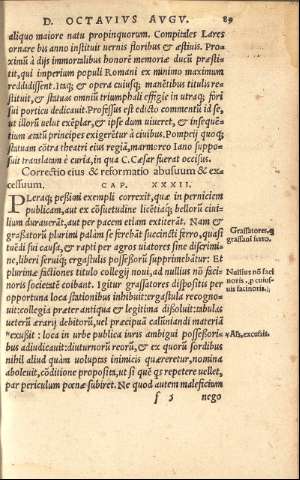 D. OCTAVIVS AVGV. 89
aliquo maiore natu propinquorum. Compitales Lares
ornare bis anno instituit vernis floribus & æstiuis. Pro-
ximū à dijs immoralibus honorē memoriæ ducū præsti-
tit, qui imperium populi Romani ex minimo maximum
reddidissent. Itaq; & opera cuiusq; manētibus titulis re-
stituit, & statuas omniū triumphali effigie in utraq; fori
sui porticu dedicauit. Professus est edicto commentū id se,
ut illorū uelut exēplar, & ipse dum uiueret, & insequē-
tium ætatū principes exigerētur à ciuibus. Pompeij quoq;
statuam cōtra theatri eius regiā, marmoreo Iano suppo-
suit translatam è curia, in qua C. Cæsar fuerat occisus.
Correctio eius & reformatio abusuum & ex-
cessuum. CAP. XXXII.
PLeraq; pessimi exempli correxit, quæ in perniciem
publicam, aut ex cōsuetudine licētiaq; bellorū ciui-
lium durauerāt, aut per pacem etiam extiterāt. Nam &
grassatorū plurimi palàm se ferebāt succincti ferro, quasi
tuēdi sui causa, & rapti per agros uiatores sine discrimi-
ne, liberi seruiq; ergastulis possessorū supprimebātur: Et
plurimæ factiones titulo collegij noui, ad nullius nō faci-
noris societatē coibant. Igitur grassatores dispositis per
opportuna loca stationibus inhibuit: ergastula recogno-
uit: collegia præter antiqua & legitima dissoluit: tabulas
ueterū ærarij debitorū, vel præcipuā calūniandi materiā
*exussit: loca in urbe publica iuris ambigui possessori-
bus adiudicauit: diuturnorū reorū, & ex quorū sordibus
nihil aliud quàm uoluptas inimicis quæreretur, nomina
aboleuit, cōditione proposita, ut si quē qs repetere uellet,
par periculum pœnæ subiret. Ne quod autem maleficium
nego
Grassatores,
grassari ferro.
Nullius nō faci
noris
Al, excussit.